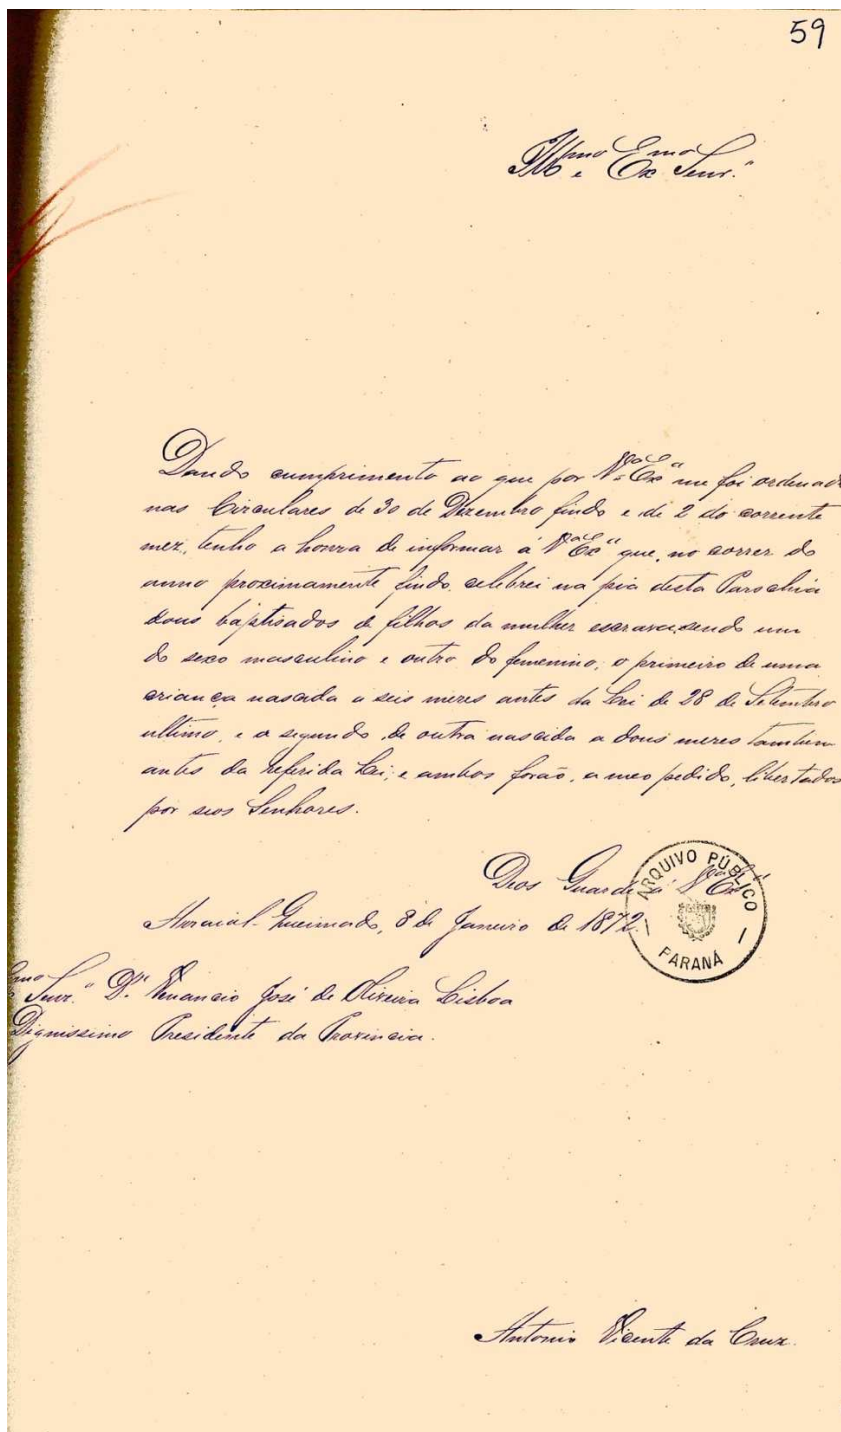 59
Illmo e Exmo Senr.
Dando cumprimento ao que por Va Exa me foi ordenado
nas Circulares de 30 de Dezembro findo e de 2 do corrente
mez, tenho a honra de informar á Va Exa que, no correr do
anno proximamente findo celebrei na pia desta Parochia
dous baptisados de filhos da mulher escrava, sendo um
do sexo masculino e outro do femenino; o primeiro de uma
criança nascida a seis mezes antes da Lei de 28 de Setembro
ultimo, e o segundo de outra nascida a dous mezes tambem
antes da referida Lei; e ambos forão, a meo pedido, libertados
por seos Senhores.
Deos Guarde á Va Exa
Arraial-Queimado, 8 de Janeiro de 1872.
ARQUIVO PÚBLICO
PARANÁ
Exmo Senr. Dr. Venancio José de Oliveira Lisboa
Dignissimo Presidente da Provincia.
Antonio Vicente da Cruz.